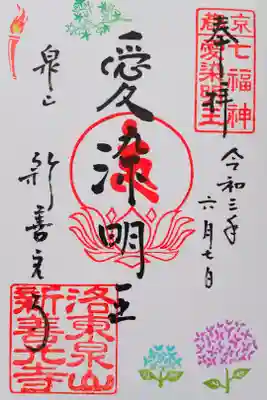 奉拝
京七福神
愛染明王
令和三年
六月七日
愛染明王
泉山
新善光寺
洛東泉山
新善光寺